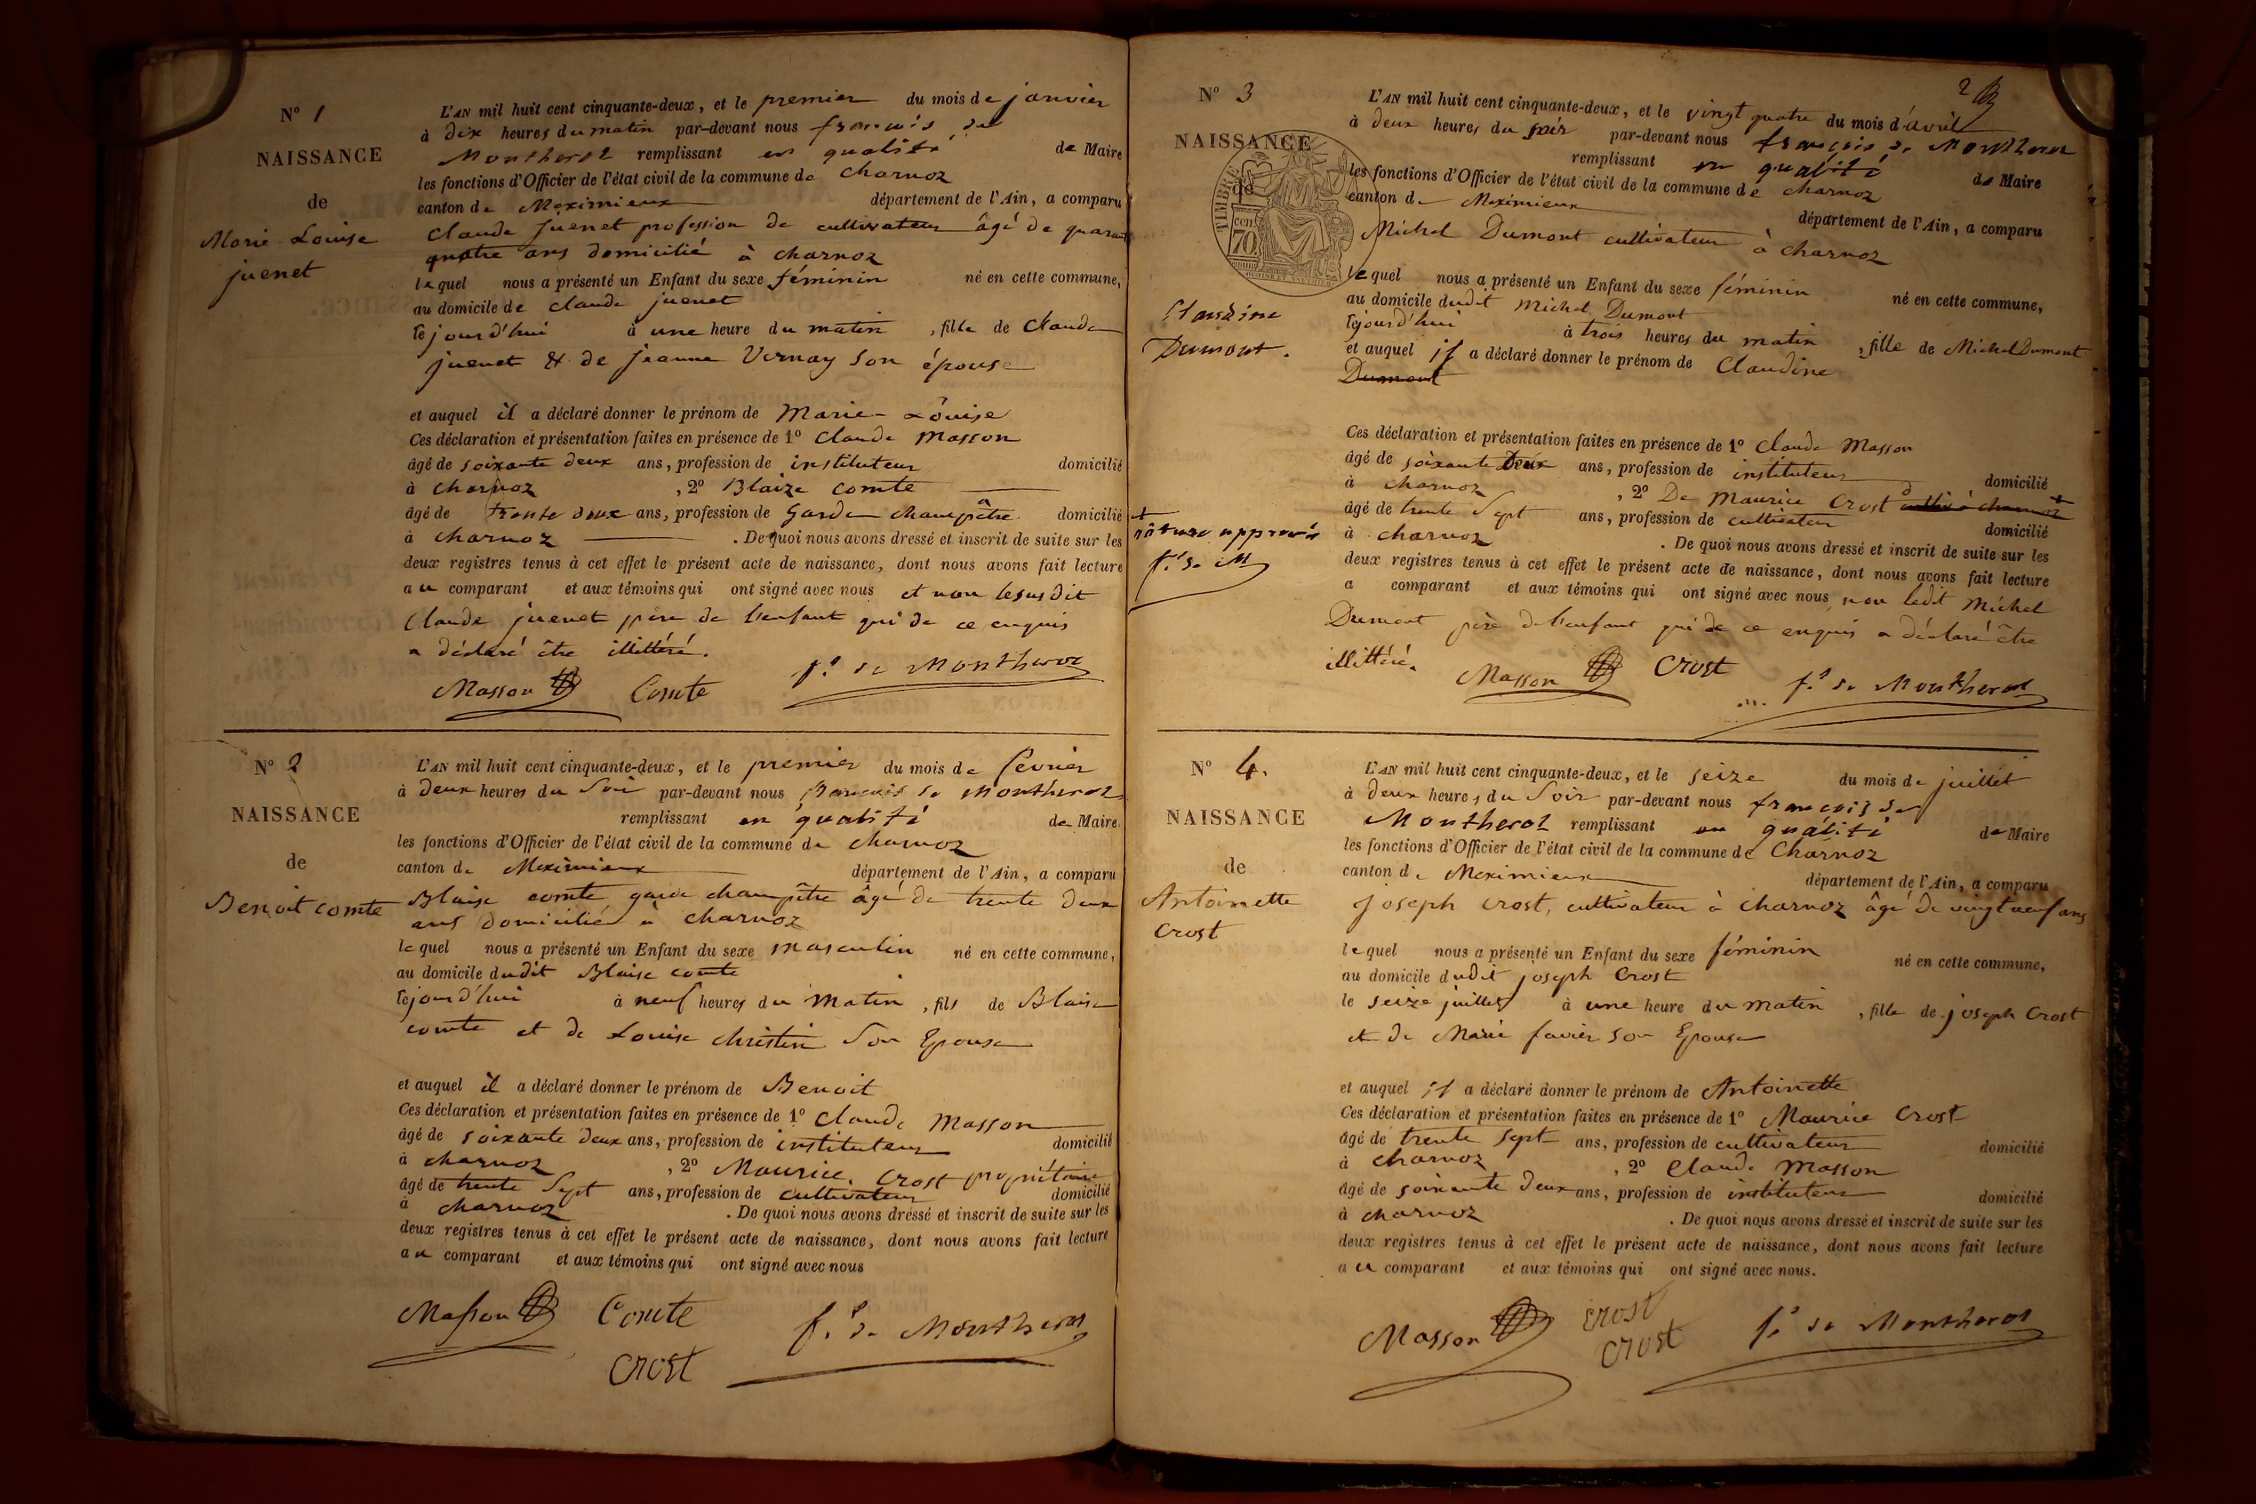 N° 1
NAISSANCE
de
Marie Louise
juenet
L'AN mil huit cent cinquante-deux, et le premier du mois de janvier
à dix heures du matin par-devant nous françois de
Montherot remplissant en qualité de Maire
les fonctions d'Officier de l'état civil de la commune de Charnoz
canton de Meximieux département de l'Ain, a comparu
Claude juenet profession de cultivateur âgé de quarante
quatre ans domicilié à charnoz
lequel nous a présenté un Enfant du sexe féminin né en cette commune,
au domicile de claude juenet
lejourd'hui à une heure du matin, fille de Claude
juenet & de jeanne Vernay son épouse
et auquel il a déclaré donner le prénom de Marie-Louise
Ces déclaration et présentation faites en présence de 1° Claude Masson
âgé de soixante deux ans, profession de instituteur domicilié
à charnoz, 2° Blaize comte
âgé de trente deux ans, profession de Garde champêtre domicilié
à charnoz. De quoi nous avons dressé et inscrit de suite sur les
deux registres tenus à cet effet le présent acte de naissance, dont nous avons fait lecture
au comparant et aux témoins qui ont signé avec nous et non lesusdit
Claude juenet père de l'enfant qui de ce enquis
a déclaré être illittéré.
Masson Comte f.s de Montherot
N° 2
NAISSANCE
de
Benoit comte
L'AN mil huit cent cinquante-deux, et le premier du mois de fevrier
à deux heures du Soir par-devant nous francois de Montherot
remplissant en qualité de Maire
les fonctions d'Officier de l'état civil de la commune de charnoz
canton de Meximieux département de l'Ain, a comparu
Blaise comte garde champêtre âgé de trente deux
ans domicilié à charnoz
lequel nous a présenté un Enfant du sexe masculin né en cette commune,
au domicile dudit Blaise comte
lejourd'hui à neuf heures du matin, fils de Blaise
comte et de Louise christin son Epouse
et auquel il a déclaré donner le prénom de Benoit
Ces déclaration et présentation faites en présence de 1° Claude Masson
âgé de soixante deux ans, profession de instituteur domicilié
à charnoz, 2° Maurice Crost propriétaire
âgé de trente Sept ans, profession de cultivateur domicilié
à charnoz. De quoi nous avons dressé et inscrit de suite sur les
deux registres tenus à cet effet le présent acte de naissance, dont nous avons fait lecture
au comparant et aux témoins qui ont signé avec nous
Masson Comte f.s de Montherot
Crost
2
N° 3
NAISSANCE
de
TIMBRE
cen
70
Claudine
Dumont.
L'AN mil huit cent cinquante-deux, et le vingt quatre du mois d'avril
à deux heures du soir par-devant nous françois de Montherot
remplissant en qualité de Maire
les fonctions d'Officier de l'état civil de la commune de charnoz
canton de Meximieux département de l'Ain, a comparu
Michel Dumont cultivateur à charnoz
lequel nous a présenté un Enfant du sexe féminin né en cette commune,
au domicile dudit Michel Dumont
lejourd'hui à trois heures du matin, fille de Michel Dumont
et auquel il a déclaré donner le prénom de Claudine
Dumont
Ces déclaration et présentation faites en présence de 1° Claude Masson
âgé de soixante Deux ans, profession de instituteur domicilié
à charnoz, 2° De Maurice Crost cultiv à charnoz
âgé de trente Sept ans, profession de cultivateur domicilié
à charnoz. De quoi nous avons dressé et inscrit de suite sur les
deux registres tenus à cet effet le présent acte de naissance, dont nous avons fait lecture
a comparant et aux témoins qui ont signé avec nous, non ledit Michel
Dumont père de l'enfant qui de ce enquis a déclaré être
illittéré.
rature approuvée
f.s de M
Masson Crost f.s de Montherot
N° 4.
NAISSANCE
de
Antoinette
Crost
L'AN mil huit cent cinquante-deux, et le seize du mois de juillet
à deux heures du Soir par-devant nous françois de
Montherot remplissant en qualité de Maire
les fonctions d'Officier de l'état civil de la commune de Charnoz
canton de Meximieux département de l'Ain, a comparu
joseph Crost, cultivateur à charnoz âgé de vingt neuf ans
lequel nous a présenté un Enfant du sexe féminin né en cette commune,
au domicile dudit joseph Crost
le seize juillet à une heure du matin, fille de joseph Crost
et de Marie favier son Epouse
et auquel il a déclaré donner le prénom de Antoinette
Ces déclaration et présentation faites en présence de 1° Maurice Crost
âgé de trente sept ans, profession de cultivateur domicilié
à charnoz, 2° Claude Masson
âgé de soixante deux ans, profession de instituteur domicilié
à charnoz. De quoi nous avons dressé et inscrit de suite sur les
deux registres tenus à cet effet le présent acte de naissance, dont nous avons fait lecture
au comparant et aux témoins qui ont signé avec nous.
Masson Crost f.s de Montherot
Crost